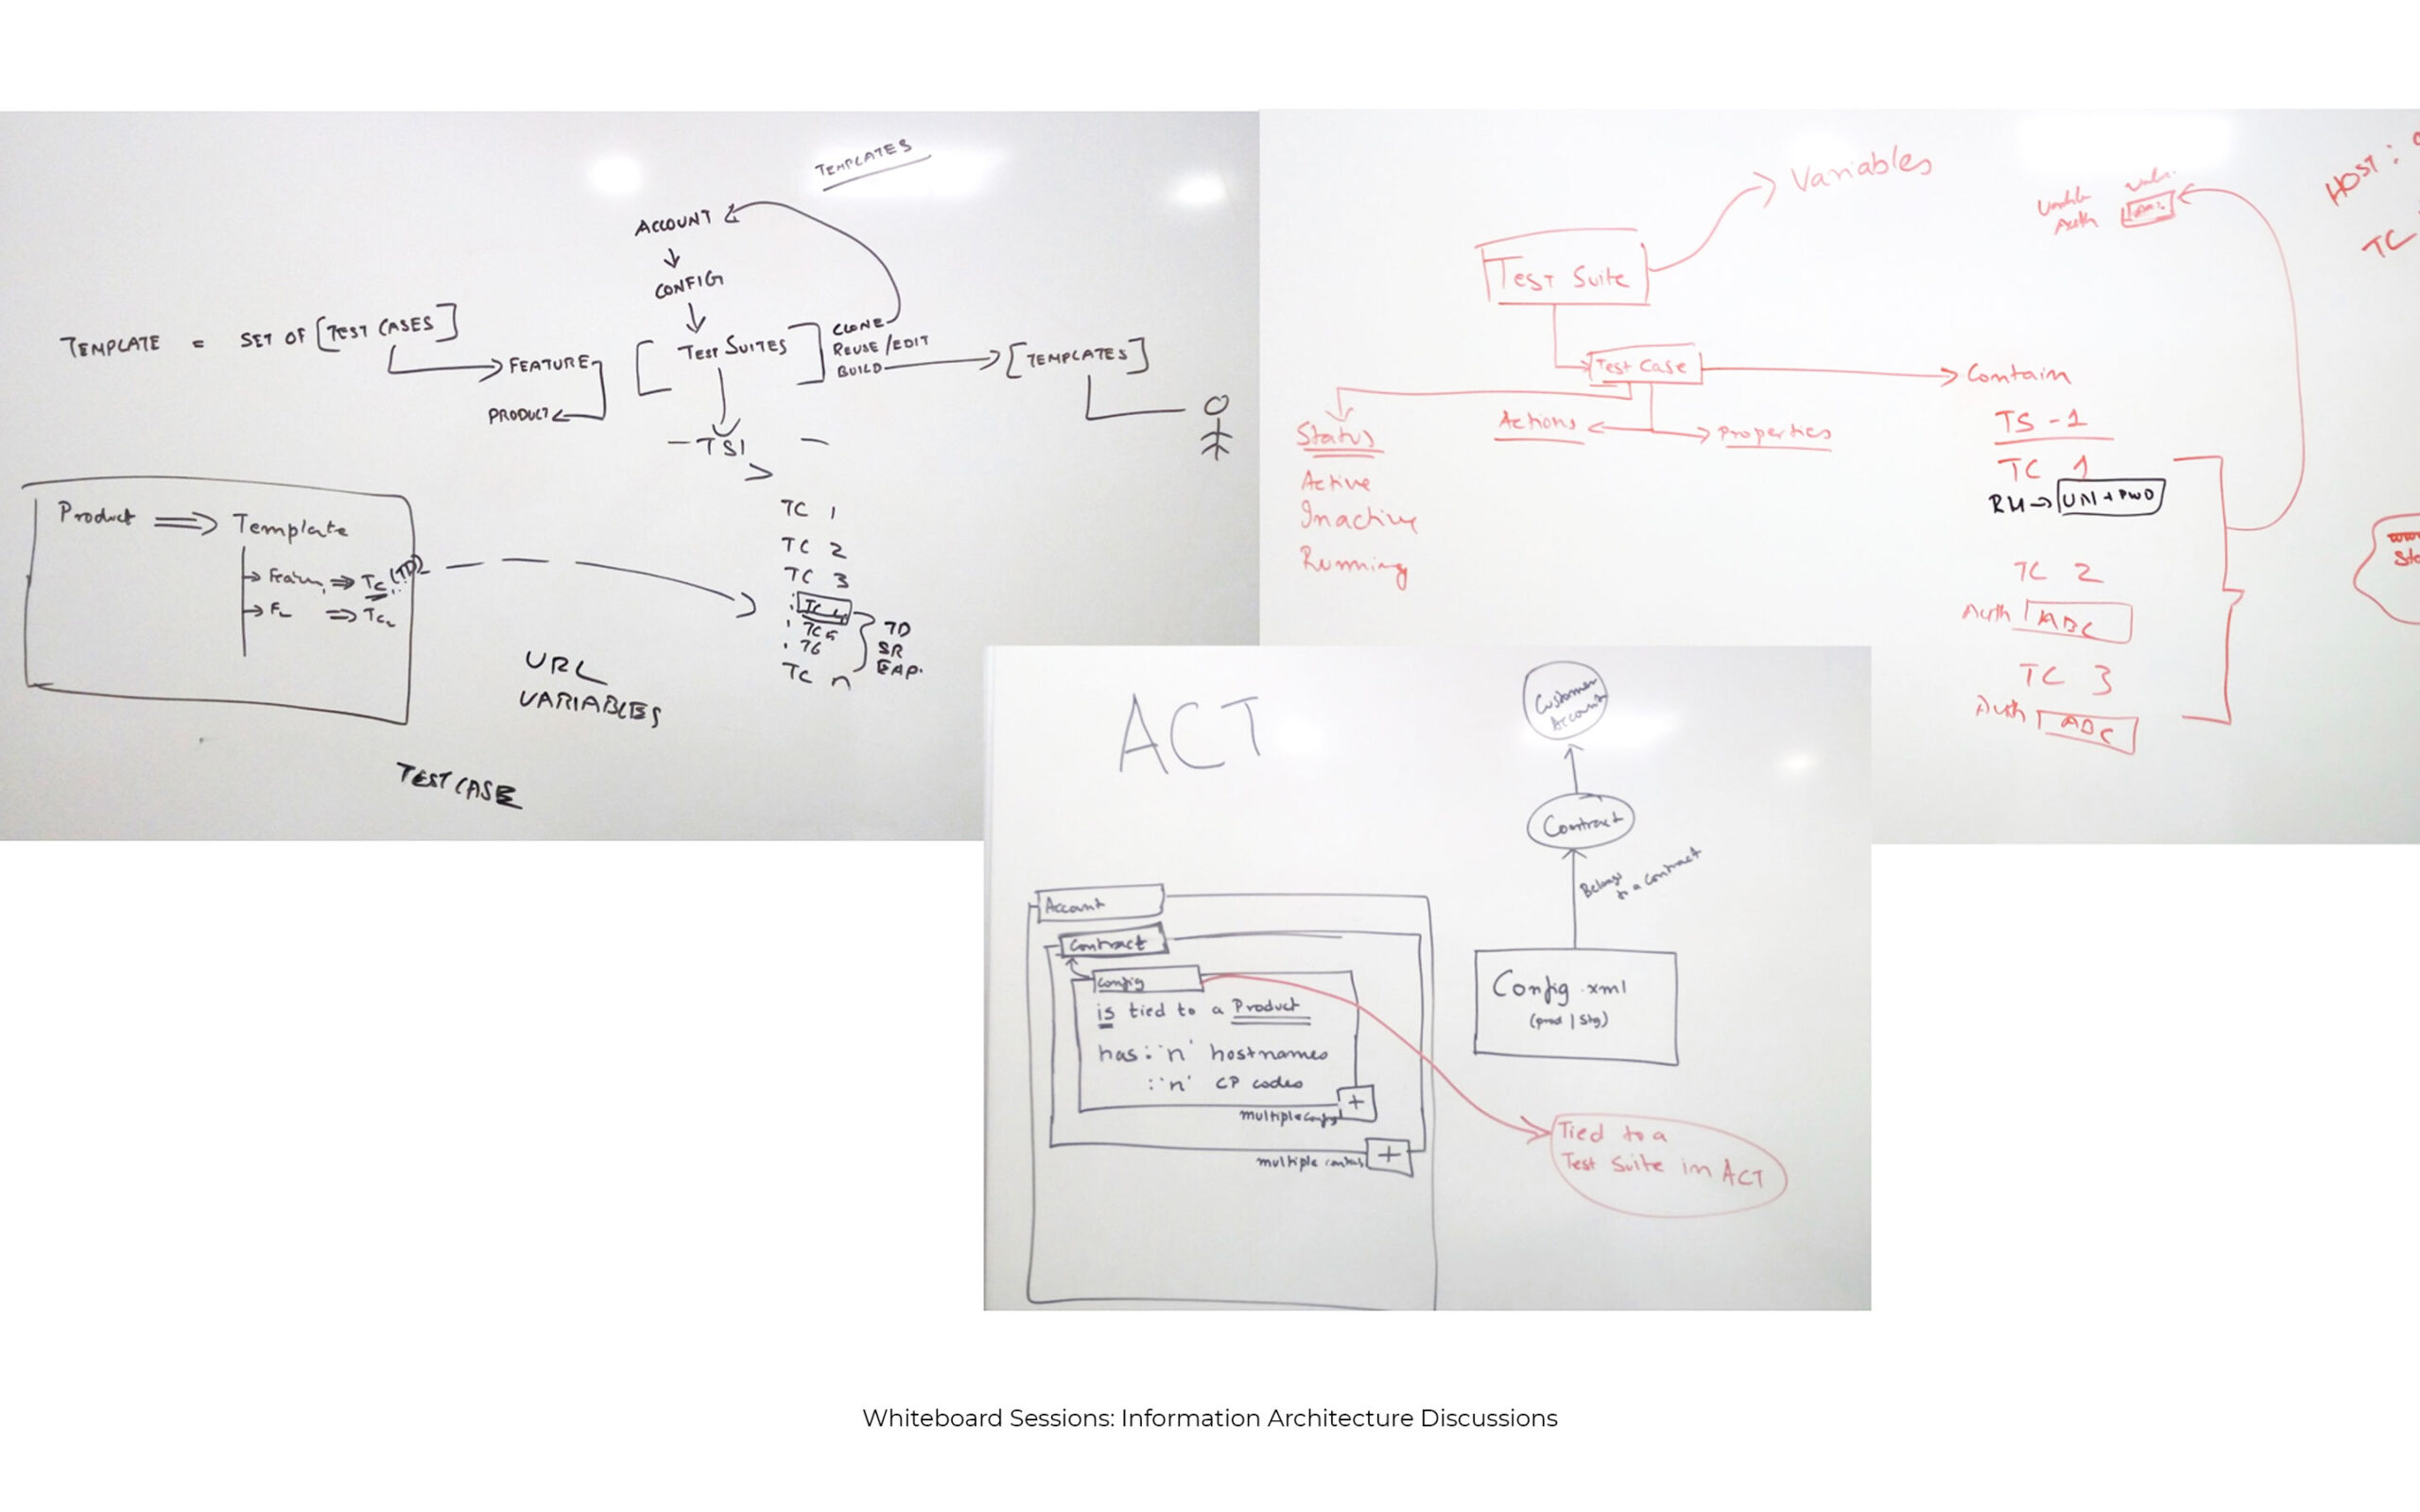 TEMPLATES
ACCOUNT
CONFIG
TEMPLATE = SET OF [TEST CASES]
FEATURE
PRODUCT
[TEST SUITES]
CLONE
REUSE/EDIT
BUILD
[TEMPLATES]
- TS1 -
>
Product ⇒ Template
⇒ TC
F2 ⇒ TC2
TC 1
TC 2
TC 3
TC n
TD
SR
EAP.
URL
VARIABLES
TEST CASE
Variables
Test Suite
Test Case
Contain
Status
Active
Inactive
Running
Actions
Properties
TS -1
TC 1
UN + PWD
TC 2
Auth ABC
TC 3
Auth ABC
Auth
HOST:
TC
ACT
Customer
Account
Contract
Belongs
to a contract
Config.xml
(prod | Stg)
Account
Contract
Config
is tied to a Product
has: 'n' hostnames
: 'n' CP codes
+
+
multiple
Tied to a
Test Suite in ACT
Whiteboard Sessions: Information Architecture Discussions